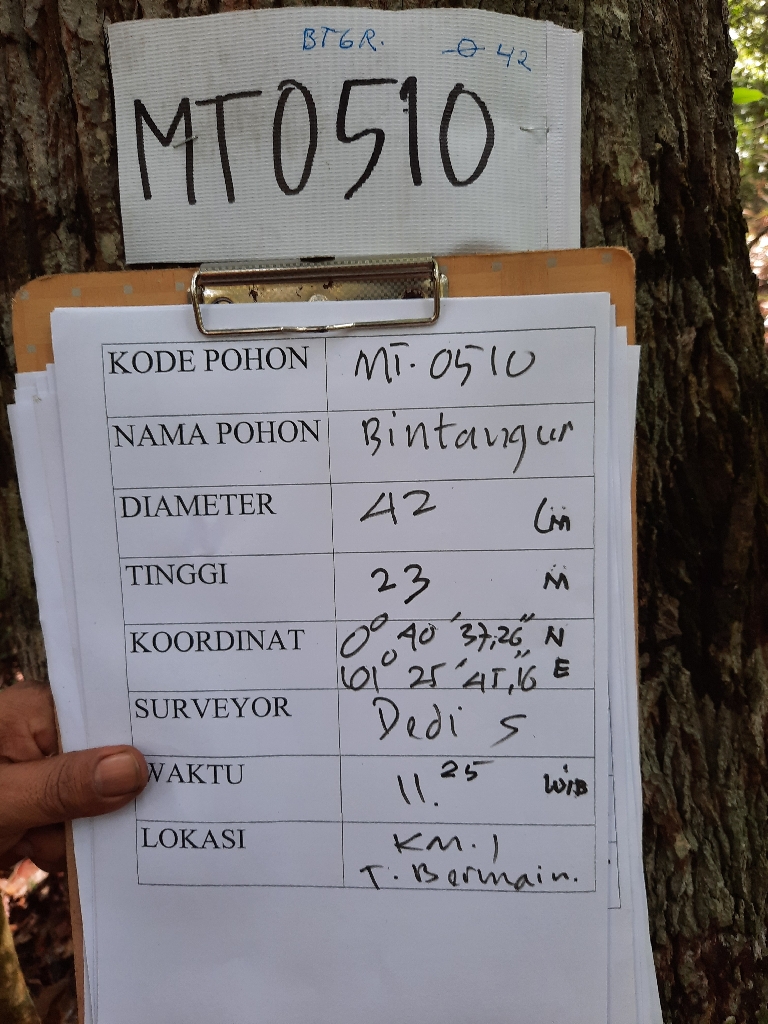 BTGR. ⌀ 42
MT0510
KODE POHON MT. 0510
NAMA POHON Bintangur
DIAMETER 42 Cm
TINGGI 23 M
KOORDINAT 0° 40' 37,26" N
101° 25' 45,16" E
SURVEYOR Dedi S
WAKTU 11.25 WIB
LOKASI KM. 1
T. Bermain.